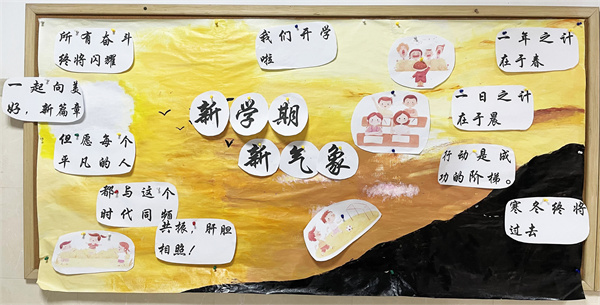 所有奋斗
终将闪耀
我们开学
啦
二年之计
在于春
一起向美
好，新篇章
新学期
新气象
二日之计
在于晨
但愿每个
平凡的人
行动是成
功的阶梯。
都与这个
时代同频
共振，肝胆
相照！
寒冬终将
过去